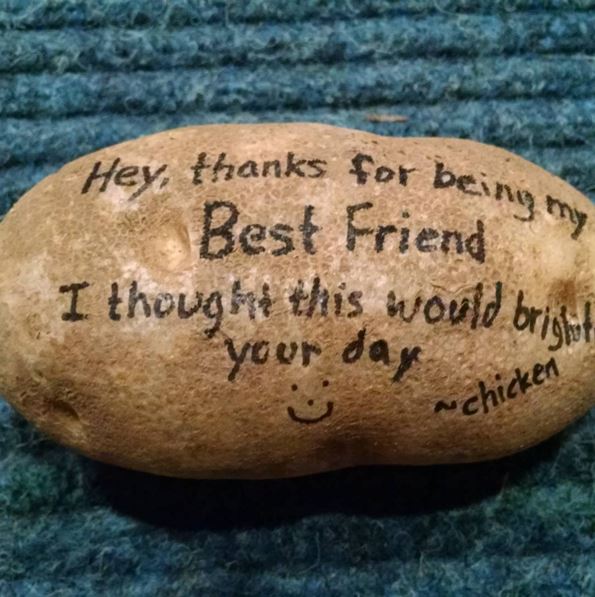 Hey, thanks for being my
Best Friend
I thought this would bright
your day
~chicken